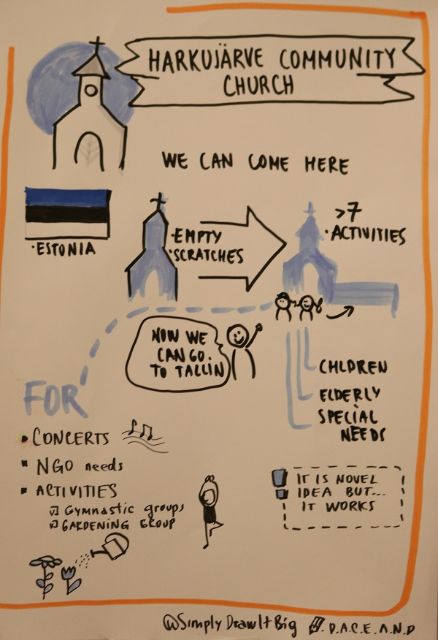 HARKUJÄRVE COMMUNITY
CHURCH
WE CAN COME HERE
·ESTONIA
·EMPTY
·SCRATCHES
>7
·ACTIVITIES
NOW WE
CAN GO
TO TALLIN
CHLDREN
ELDERLY
SPECIAL
NEEDS
FOR
CONCERTS
NGO needs
ACTIVITIES
Gymnastic groups
GARDENING GROUP
!! IT IS NOVEL
IDEA BUT...
IT WORKS
@SimplyDrawItBig
D.A.C.E.A.N.D